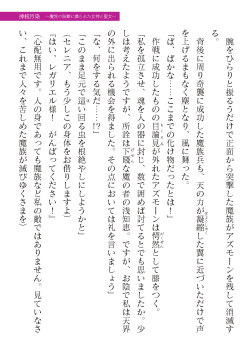 神核汚染 ～魔悦の胎動に膨らみ孕む女神と聖女～
腕をひらりと振るうだけで正面から突撃した魔族がアズモーンを残して消滅す
る。
背後に周り奇襲に成功した魔族兵も、天の力が凝縮した翼に近づいただけで声
を上げるまもなく塵となり、風に舞った。
「ば……ばかな……ここまでの化物だったとは！」
作戦に成功したもの目論見が外れたアズモーンは愕然として膝をつく。
「私を孤立させ、魂を人の器に封じ、数で責めれば討てるとでも思いましたか。少
しは考えたようですが、所詮は下賤な魔の者の浅知恵。ですが、お陰で私は天界
の外に出られる機会を得ました。その点においては礼を言いましょう」
「な、何をするんだ……!?」
「このまま足元で這い回る虫を根絶やしにしようかと」
「セレニア、もう少しこの身体をお借りしますよ」
「はい、レガリエル様！　がんばってください！」
（心配無用です。人の身であっても魔族など私の敵ではありません。見ていなさ
い、これまで人々を苦しめた魔族が滅びゆくさまを）